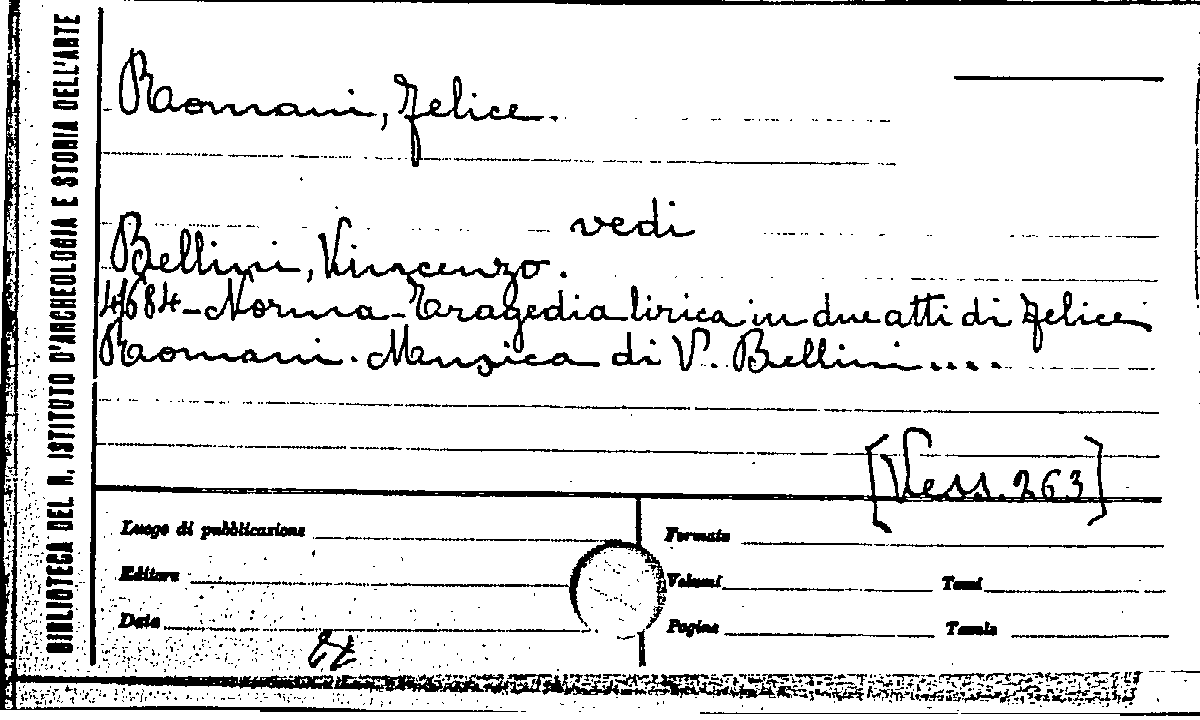 BIBLIOTECA DEL R. ISTITUTO D'ARCHEOLOGIA E STORIA DELL'ARTE
Romani, Felice.
vedi
Bellini, Vincenzo.
41684-Norma-Tragedia lirica in due atti di Felice
Romani. Musica di V. Bellini....
[Vess. 263]
Luogo di pubblicazione
Formato
Editore
Volumi
Tomi
Data
Pagine
Tavole